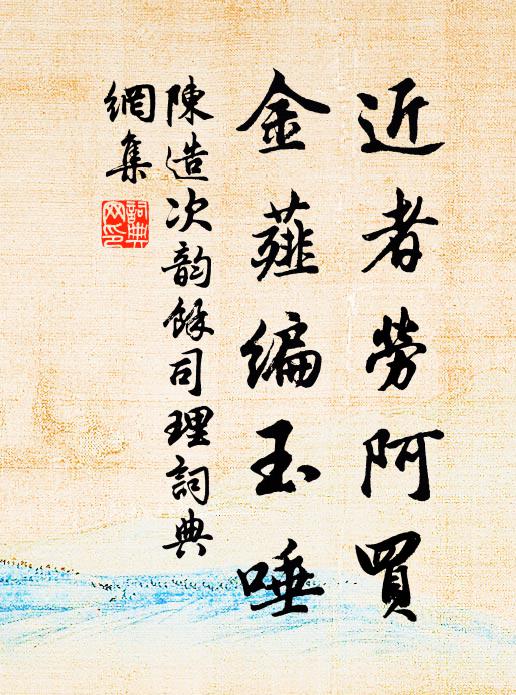 近者勞阿買
金薤編玉唾
陳造次韵餘司理詞典
網集
詞典
网印